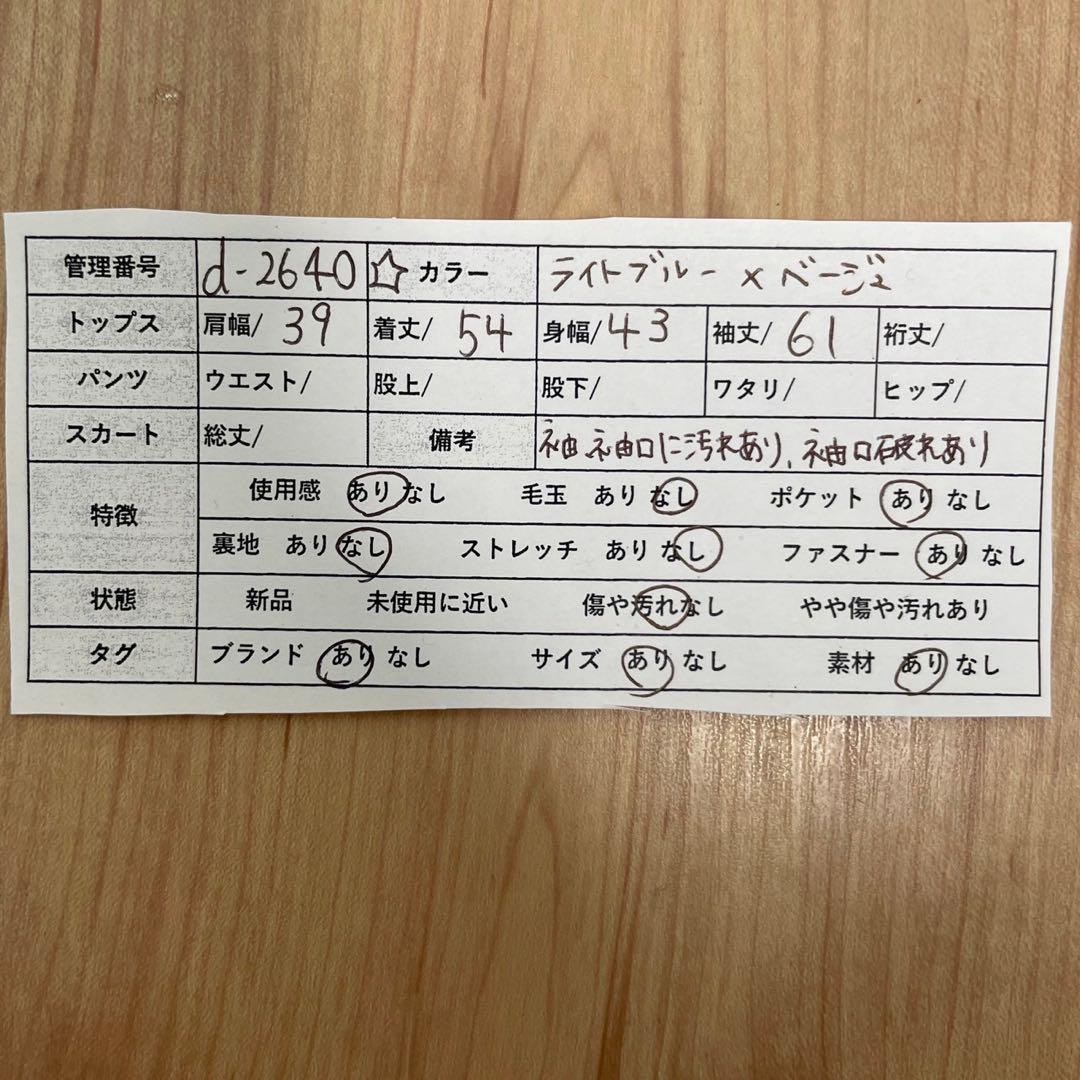 管理番号 d-2640 ☆ カラー ライトブルー × ベージュ
トップス 肩幅/ 39 着丈/ 54 身幅/ 43 袖丈/ 61 裄丈/
パンツ ウエスト/ 股上/ 股下/ ワタリ/ ヒップ/
スカート 総丈/ 備考 袖、袖口に汚れあり、袖口破れあり
特徴 使用感 あり なし 毛玉 あり なし ポケット あり なし
裏地 あり なし ストレッチ あり なし ファスナー あり なし
状態 新品 未使用に近い 傷や汚れなし やや傷や汚れあり
タグ ブランド あり なし サイズ あり なし 素材 あり なし